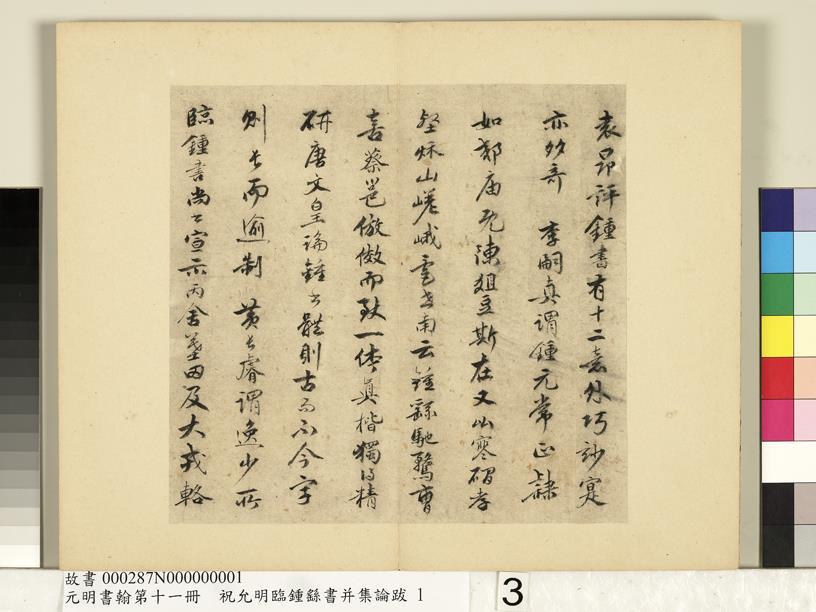 袁昂評鍾書有十二意外巧妙寔
亦多奇 李嗣真謂鍾元常正隸
如郊廟既陳俎豆斯在又山寒磵孝
壑秋山嵯峨 南云鍾繇馳騖曹
喜蔡邕倣傚而致一體真楷獨得精
研唐文皇論鍾書體則古而不今字
則長而逾制 黃長睿謂逸少所
臨鍾書尚書宣示丙舍墓田及大戎輅
故書 000287N000000001
元明書翰第十一冊 祝允明臨鍾繇書并集論跋 1
3